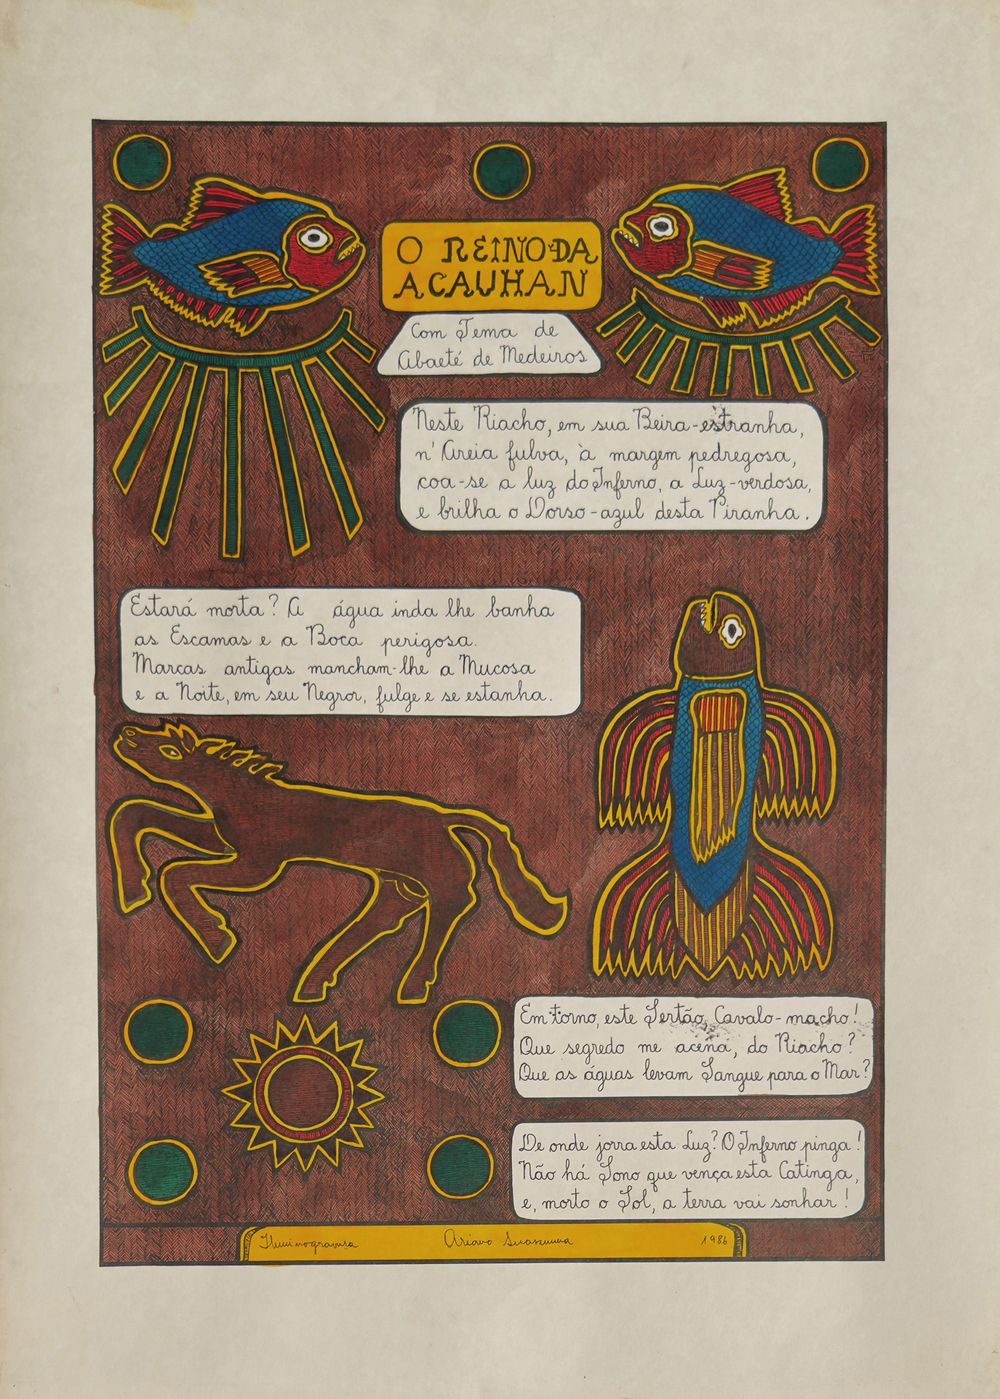 O REINO DA
ACAUHAN
Com Tema de
Abaeté de Medeiros
Neste Riacho, em sua Beira-estranha,
n'Areia fulva, à margem pedregosa,
coa-se a luz do Inferno, a Luz-verdosa,
e brilha o Dorso-azul desta Piranha.
Estará morta? A água inda lhe banha
as Escamas e a Boca perigosa.
Marcas antigas mancham-lhe a Mucosa
e a Noite, em seu Negror, fulge e se estanha.
Em torno, este Sertão, Cavalo-macho!
Que segredo me acena, do Riacho?
Que as águas levam Sangue para o Mar?
De onde jorra esta Luz? O Inferno pinga!
Não há Sono que vença esta Catinga,
e, morto o Sol, a terra vai sonhar!
Iluminogravura Ariano Suassuna 1986